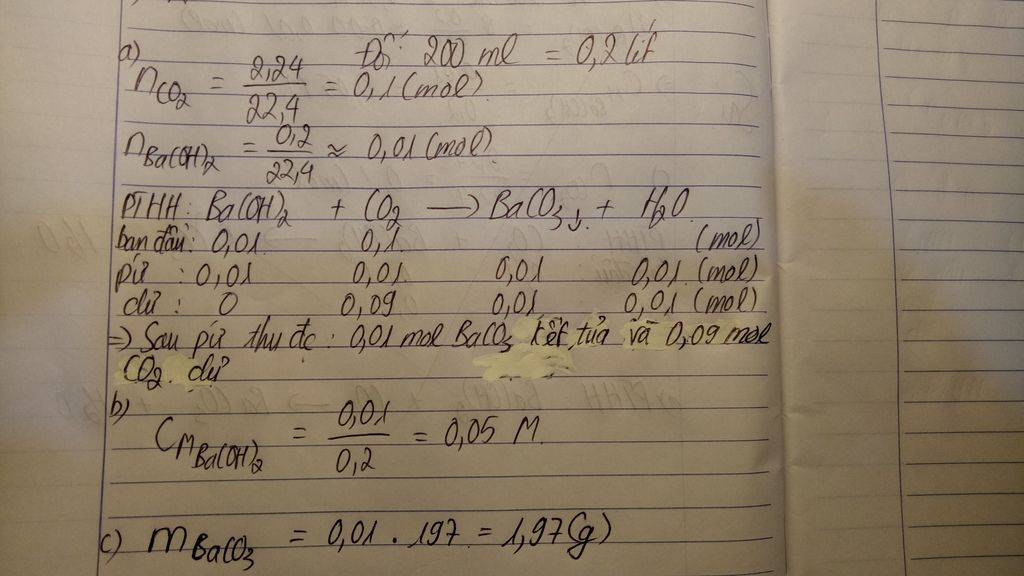 a) Đổi: 200 ml = 0,2 lít
nCO2 = 2,24/22,4 = 0,1 (mol)
nBa(OH)2 = 0,2/22,4 ≈ 0,01 (mol)
PTHH: Ba(OH)2 + CO2 → BaCO3↓ + H2O
ban đầu: 0,01 0,1 (mol)
pứ : 0,01 0,01 0,01 0,01 (mol)
dư : 0 0,09 0,01 0,01 (mol)
=> Sau pứ thu đc : 0,01 mol BaCO3 kết tủa và 0,09 mol
CO2 dư
b)
CM Ba(OH)2 = 0,01/0,2 = 0,05 M
c) mBaCO3 = 0,01 . 197 = 1,97 (g)